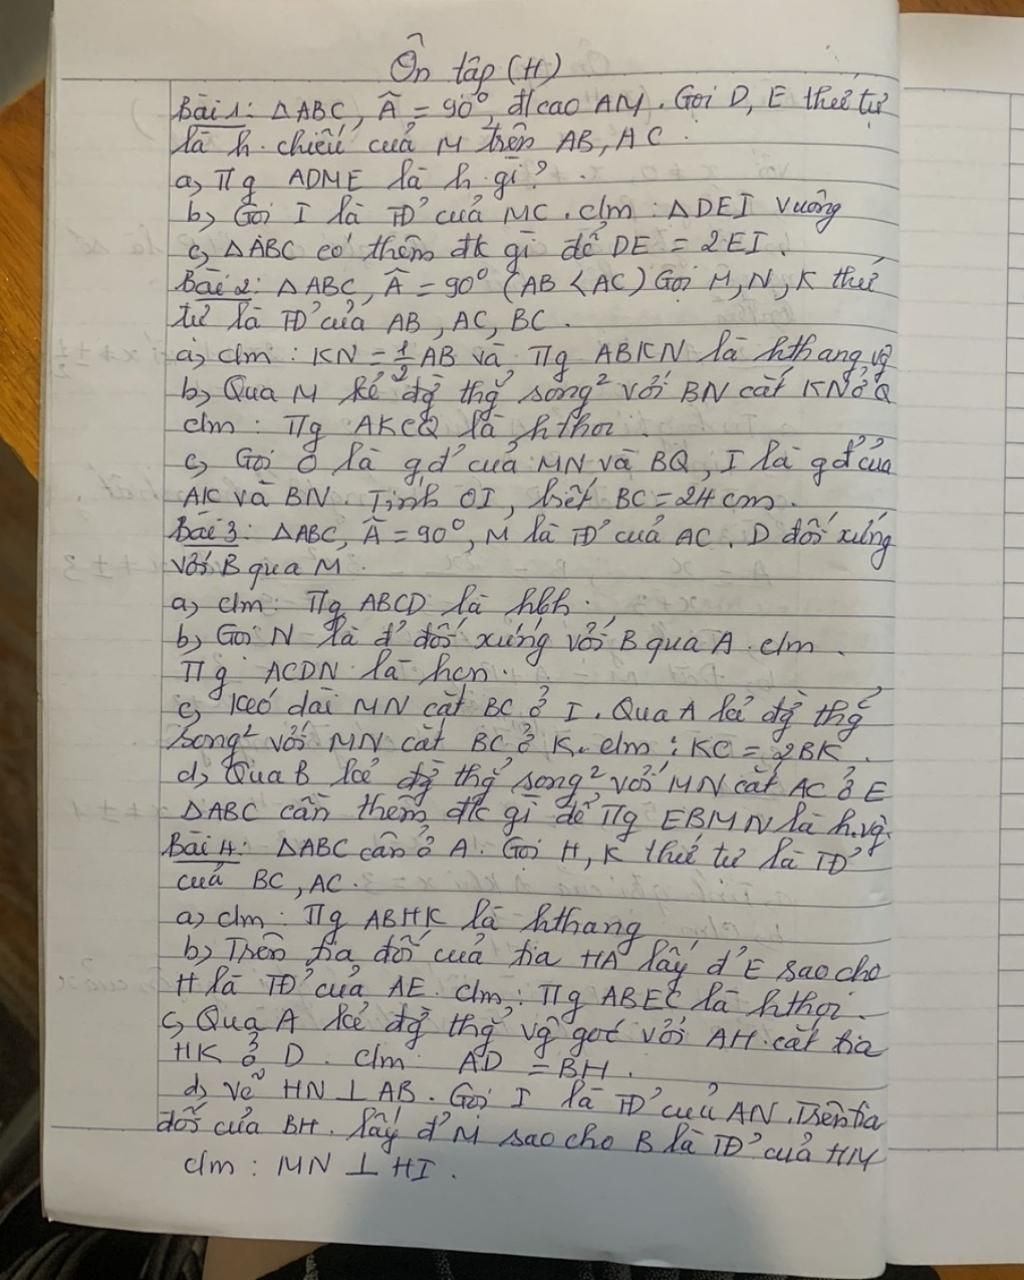 Ôn tập (H)
Bài 1: △ABC, Â = 90°, đ/cao AM. Gọi D, E thứ tự
là h.chiếu của M trên AB, AC.
a, Πg ADME là h.gì?
b, Gọi I là TĐ' của MC. c/m: △DEI vuông
c, △ABC có thêm đk gì để DE = 2EI.
Bài 2: △ABC, Â = 90° (AB < AC) Gọi M, N, K thứ
tự là TĐ' của AB, AC, BC.
a, c/m: KN = 1/2 AB và Πg ABKN là hthang vg
b, Qua M kẻ đg thg song² với BN cắt KN ở Q
c/m: Πg AKCQ là hthoi.
c, Gọi O là gđ' của MN và BQ, I là gđ' của
AK và BN. Tính OI, biết BC = 24 cm.
Bài 3: △ABC, Â = 90°, M là TĐ' của AC. D đối xứng
với B qua M.
a, c/m: Πg ABCD là hbh.
b, Gọi N là đ' đối xứng với B qua A. c/m.
Πg ACDN là hcn.
c, Kéo dài MN cắt BC ở I. Qua A kẻ đg thg
song² với MN cắt BC ở K. c/m: KC = 2BK.
d, Qua B kẻ đg thg song² với MN cắt AC ở E
△ABC cần thêm đk gì để Πg EBMN là h.vg.
Bài 4: △ABC cân ở A. Gọi H, K thứ tự là TĐ'
của BC, AC.
a, c/m: Πg ABHK là hthang
b, Trên tia đối của tia HA lấy đ' E sao cho
H là TĐ' của AE. c/m: Πg ABEC là hthoi.
c, Qua A kẻ đg thg vg góc với AH cắt tia
HK ở D. c/m AD = BH.
d, Vẽ HN ⊥ AB. Gọi I là TĐ' của AN. Trên tia
đối của BH. lấy đ' M sao cho B là TĐ' của HM
c/m: MN ⊥ HI.